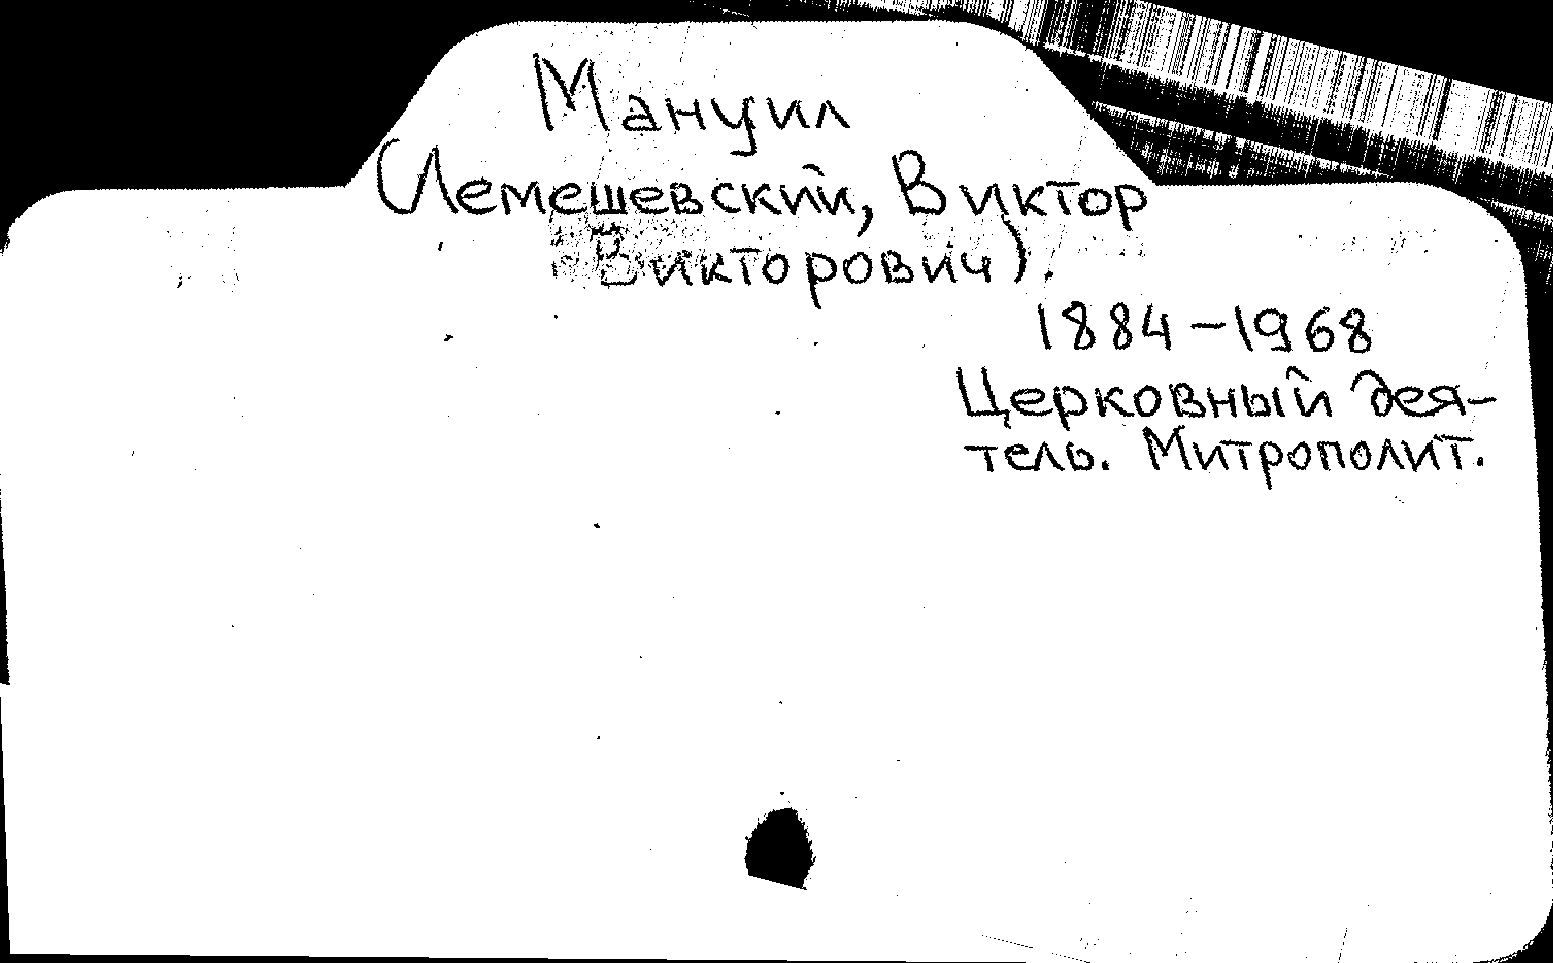 Мануил
(Лемешевский, Виктор
Викторович).
1884-1968
Церковный дея-
тель. Митрополит.